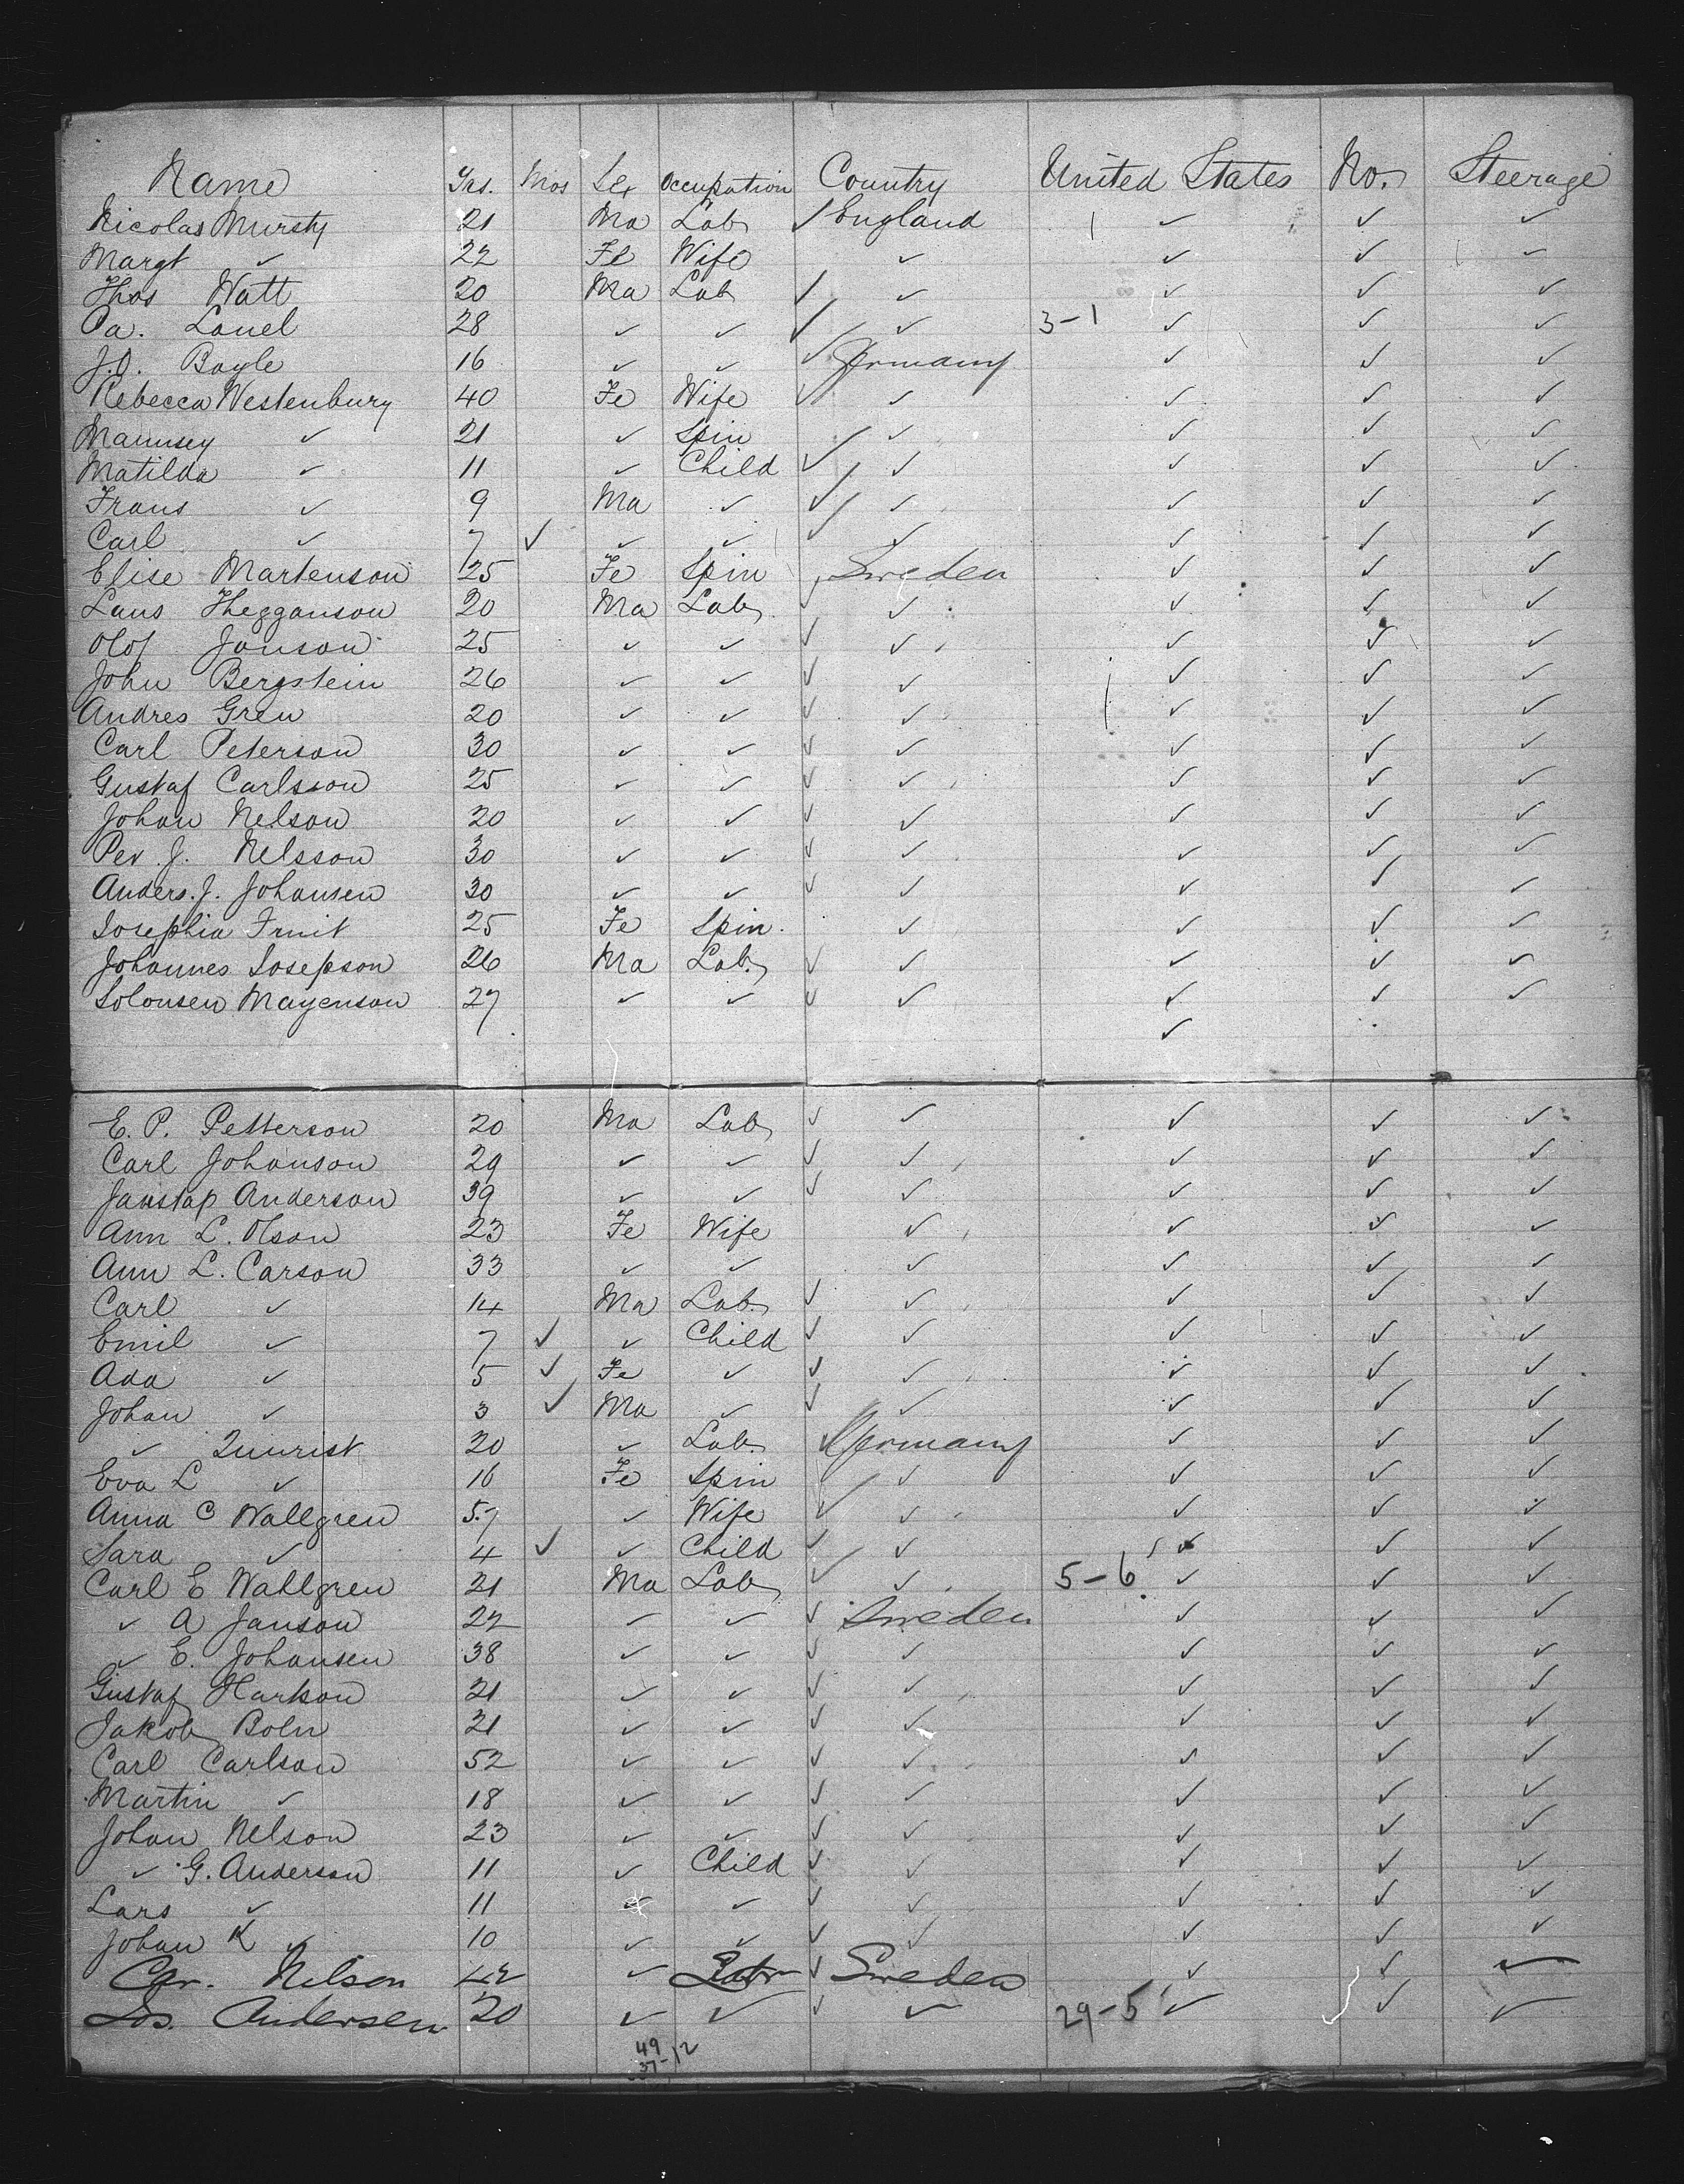 Name Yrs. Mos Sex Occupation Country United States No. Steerage
Nicolas Mursty 21 Ma Lab ✓ England ✓ ✓ ✓
Margt ✓ 22 Fe Wife ✓ ✓ ✓ ✓
Thos Watt 20 Ma Lab ✓ ✓ ✓ ✓ ✓
Ca. Lanel 28 ✓ ✓ ✓ ✓ 3-1 ✓ ✓ ✓
J.O. Boyle 16 ✓ ✓ ✓ Germany ✓ ✓ ✓
Rebecca Westenbury 40 Fe Wife ✓ ✓ ✓ ✓ ✓
Maunsey ✓ 21 ✓ Spin ✓ ✓ ✓ ✓ ✓
Matilda ✓ 11 ✓ Child ✓ ✓ ✓ ✓ ✓
Frans ✓ 9 Ma ✓ ✓ ✓ ✓ ✓ ✓
Carl ✓ 7 ✓ ✓ ✓ ✓ ✓ ✓ ✓ ✓
Elise Martenson 25 Fe Spin ✓ Sweden ✓ ✓ ✓
Laus Thegganson 20 Ma Lab ✓ ✓ ✓ ✓ ✓
Olof Janson 25 ✓ ✓ ✓ ✓ ✓ ✓ ✓
John Bergstein 26 ✓ ✓ ✓ ✓ ✓ ✓ ✓
Andres Gren 20 ✓ ✓ ✓ ✓ ✓ ✓ ✓
Carl Peterson 30 ✓ ✓ ✓ ✓ ✓ ✓ ✓
Gustaf Carlsson 25 ✓ ✓ ✓ ✓ ✓ ✓ ✓
Johan Nelson 20 ✓ ✓ ✓ ✓ ✓ ✓ ✓
Per. J. Nelsson 30 ✓ ✓ ✓ ✓ ✓ ✓ ✓
Anders. J. Johansen 30 ✓ ✓ ✓ ✓ ✓ ✓ ✓
Josephia Fruit 25 Fe Spin ✓ ✓ ✓ ✓
Johannes Josepson 26 Ma Lab. ✓ ✓ ✓ ✓ ✓
Solonsen Mayenson 27 ✓ ✓ ✓ ✓ ✓ ✓ ✓
✓
E. P. Petterson 20 Ma Lab ✓ ✓ ✓ ✓ ✓
Carl Johanson 29 ✓ ✓ ✓ ✓ ✓ ✓ ✓
Janstap Anderson 39 ✓ ✓ ✓ ✓ ✓ ✓ ✓
Ann L. Olson 23 Fe Wife ✓ ✓ ✓ ✓
Ann L. Carson 33 ✓ ✓ ✓ ✓ ✓ ✓
Carl ✓ 14 Ma Lab. ✓ ✓ ✓ ✓ ✓
Emil ✓ 7 ✓ ✓ Child ✓ ✓ ✓ ✓ ✓
Ada ✓ 5 ✓ Fe ✓ ✓ ✓ ✓ ✓ ✓
Johan ✓ 3 ✓ Ma ✓ ✓ ✓ ✓ ✓ ✓
✓ Quurist 20 ✓ Lab. ✓ Germany ✓ ✓ ✓
Eva L ✓ 16 Fe Spin ✓ ✓ ✓ ✓ ✓
Anna C Wallgren 57 ✓ Wife ✓ ✓ ✓ ✓ ✓
Sara ✓ 4 ✓ ✓ Child ✓ ✓ ✓ ✓ ✓
Carl E Wahlgren 21 Ma Lab ✓ ✓ 5-6 ✓ ✓ ✓
✓ A Janson 22 ✓ ✓ ✓ Sweden ✓ ✓ ✓
✓ E. Johansen 38 ✓ ✓ ✓ ✓ ✓ ✓ ✓
Gustaf Harkson 21 ✓ ✓ ✓ ✓ ✓ ✓ ✓
Jakob Boln 21 ✓ ✓ ✓ ✓ ✓ ✓ ✓
Carl Carlson 52 ✓ ✓ ✓ ✓ ✓ ✓ ✓
Martin ✓ 18 ✓ ✓ ✓ ✓ ✓ ✓ ✓
Johan Nelson 23 ✓ ✓ ✓ ✓ ✓ ✓ ✓
✓ G. Anderson 11 ✓ Child ✓ ✓ ✓ ✓ ✓
Lars ✓ 11 ✓ ✓ ✓ ✓ ✓ ✓ ✓
Johan K ✓ 10 ✓ ✓ ✓ ✓ ✓ ✓ ✓
Car. Nelson 42 ✓ Labr ✓ Sweden ✓ ✓ ✓
Jos. Andersen 20 ✓ ✓ ✓ ✓ 29-5 ✓ ✓ ✓
49
37-12